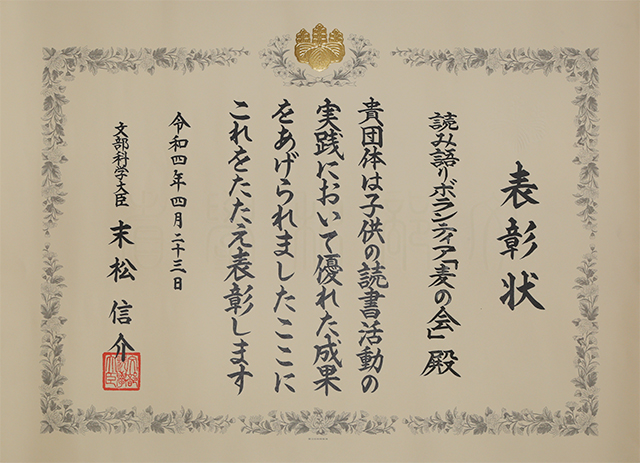 表彰状
読み語りボランティア「麦の会」殿
貴団体は子供の読書活動の
実践において優れた成果
をあげられましたここに
これをたたえ表彰します
令和四年四月二十三日
文部科学大臣 末松信介